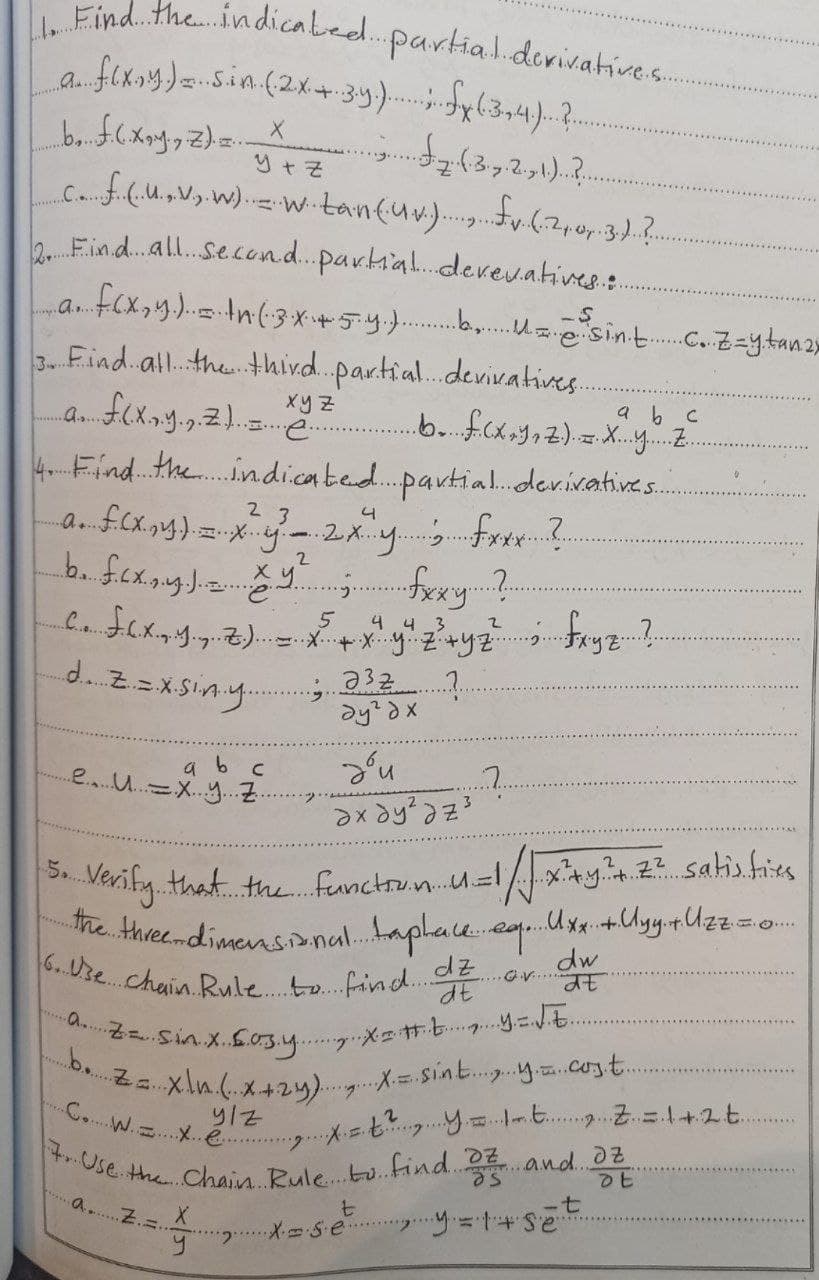 1. Find the indicated partial derivatives
a. f(x,y) = sin(2x + 3y) ; fx(3,4) ?
b. f(x,y,z) = x/(y + z) ; fz(3,2,1) ?
c. f(u,v,w) = w tan(uv) , fv(2,0,3) ?
2. Find all second partial derevatives:
a. f(x,y) = ln(3x + 5y) b. u = e^-s sint c. z=y tan2x
3. Find all the third partial derivatives
a. f(x,y,z) = e^xyz b. f(x,y,z) = x^a y^b z^c
4. Find the indicated partial derivatives
a. f(x,y) = x²y³ - 2x⁴y ; fxxx ?
b. f(x,y) = e^xy² ; fxxy ?
c. f(x,y,z) = x⁵ + x⁴y⁴z³ + yz² ; fxyz ?
d. z = x sin y ; ∂3z/∂y²∂x ?
e. u = x^a y^b z^c , ∂⁶u/∂x∂y²∂z³ ?
5. Verify that the function u=1/√x²+y²+z² satisfies
the three-dimensional Laplace eq. Uxx + Uyy + Uzz = 0
6. Use Chain Rule to find dz/dt or dw/dt
a. z = sin x cos y , x = πt , y = √t
b. z = x ln(x+2y) , x = sint , y = cost
c. w = x e^y/z , x = t² , y = 1-t , z = 1+2t
7. Use the Chain Rule to find ∂z/∂s and ∂z/∂t
a. z = x/y , x = se^t , y = 1 + se^-t